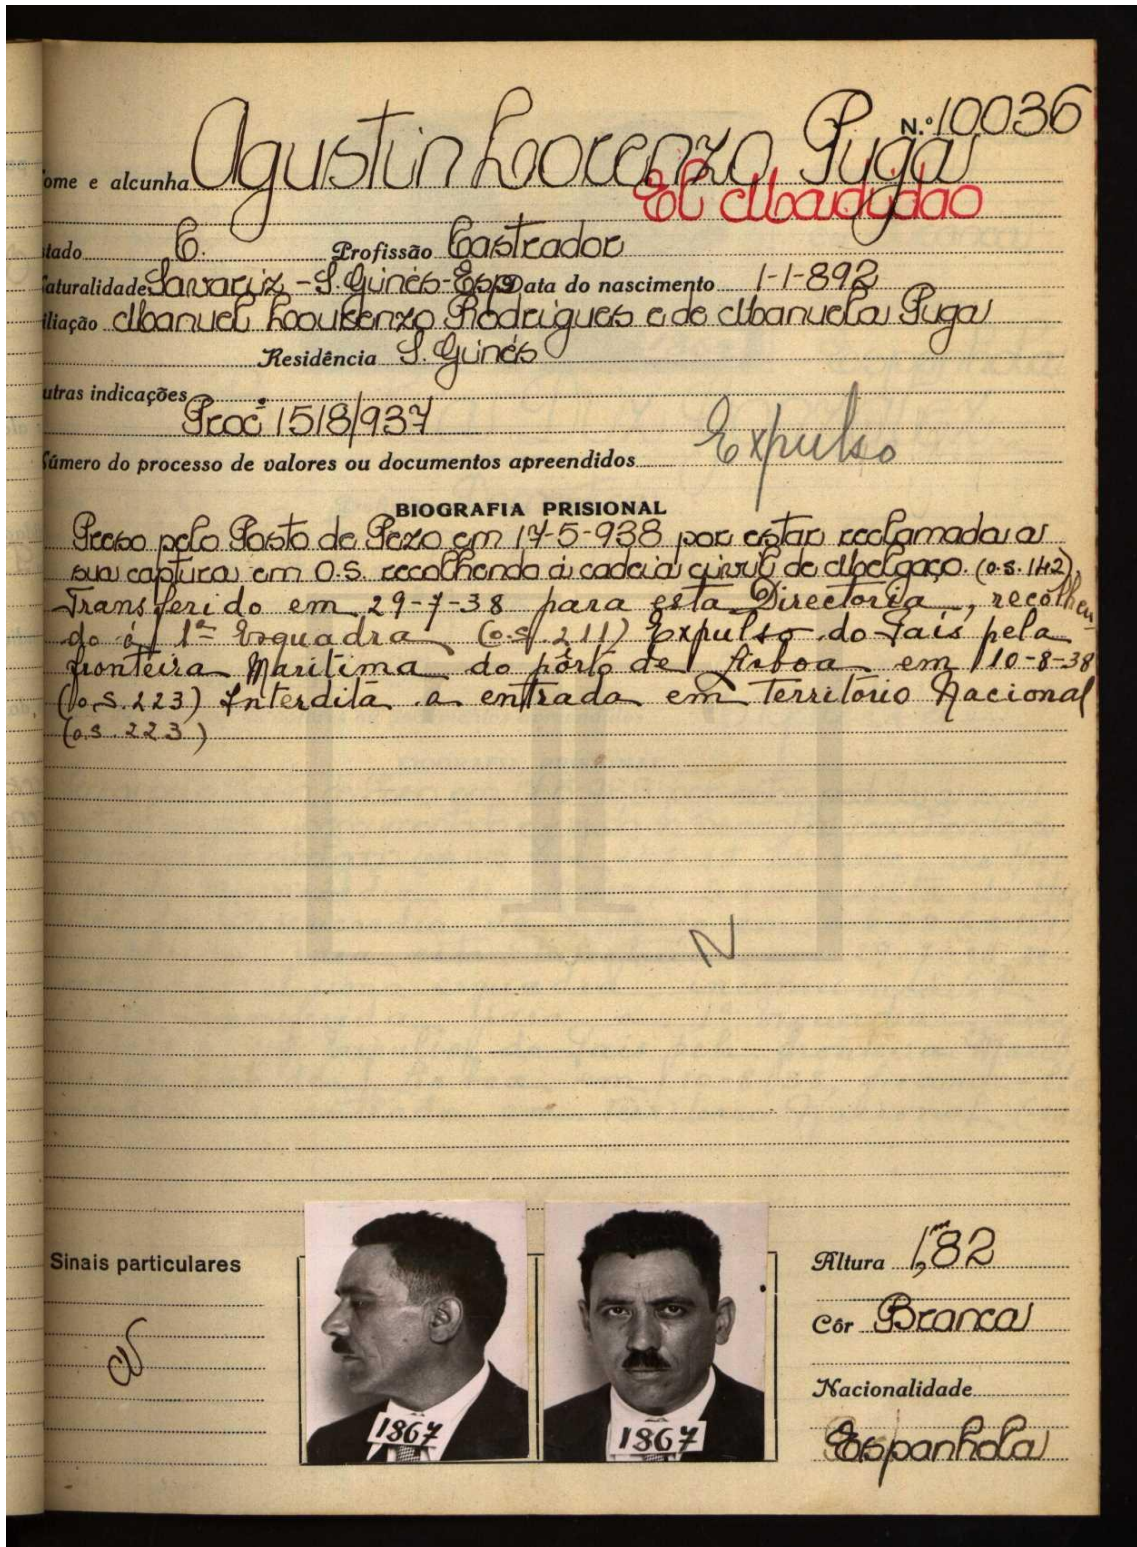 N.º 10036
ome e alcunha Agustin Lorenzo Puga
El
tado C. Profissão Castrador
aturalidade Savariz - S. Ginés - Esp. Data do nascimento 1-1-892
iliação Manuel Lourenzo Rodrigues e de Manuela Puga
Residência S. Ginés
utras indicações
Procº 1518/937
Expulso
úmero do processo de valores ou documentos apreendidos
BIOGRAFIA PRISIONAL
Preso pelo Posto de Pezo em 17-5-938 por estar reclamada a
sua captura em O.S. recolhendo á cadeia civil de Melgaço. (o.s. 142).
Transferido em 29-7-38 para esta Directoria, recolhen-
do á 1ª Esquadra (o.s. 211) Expulso do País pela
fronteira Marítima do pôrto de Lisboa em 10-8-38
(o.s. 223) Interdita a entrada em Território Nacional
(o.s. 223)
N
Sinais particulares
Altura 1,m82
Côr Branca
Nacionalidade
Espanhola
1867
1867